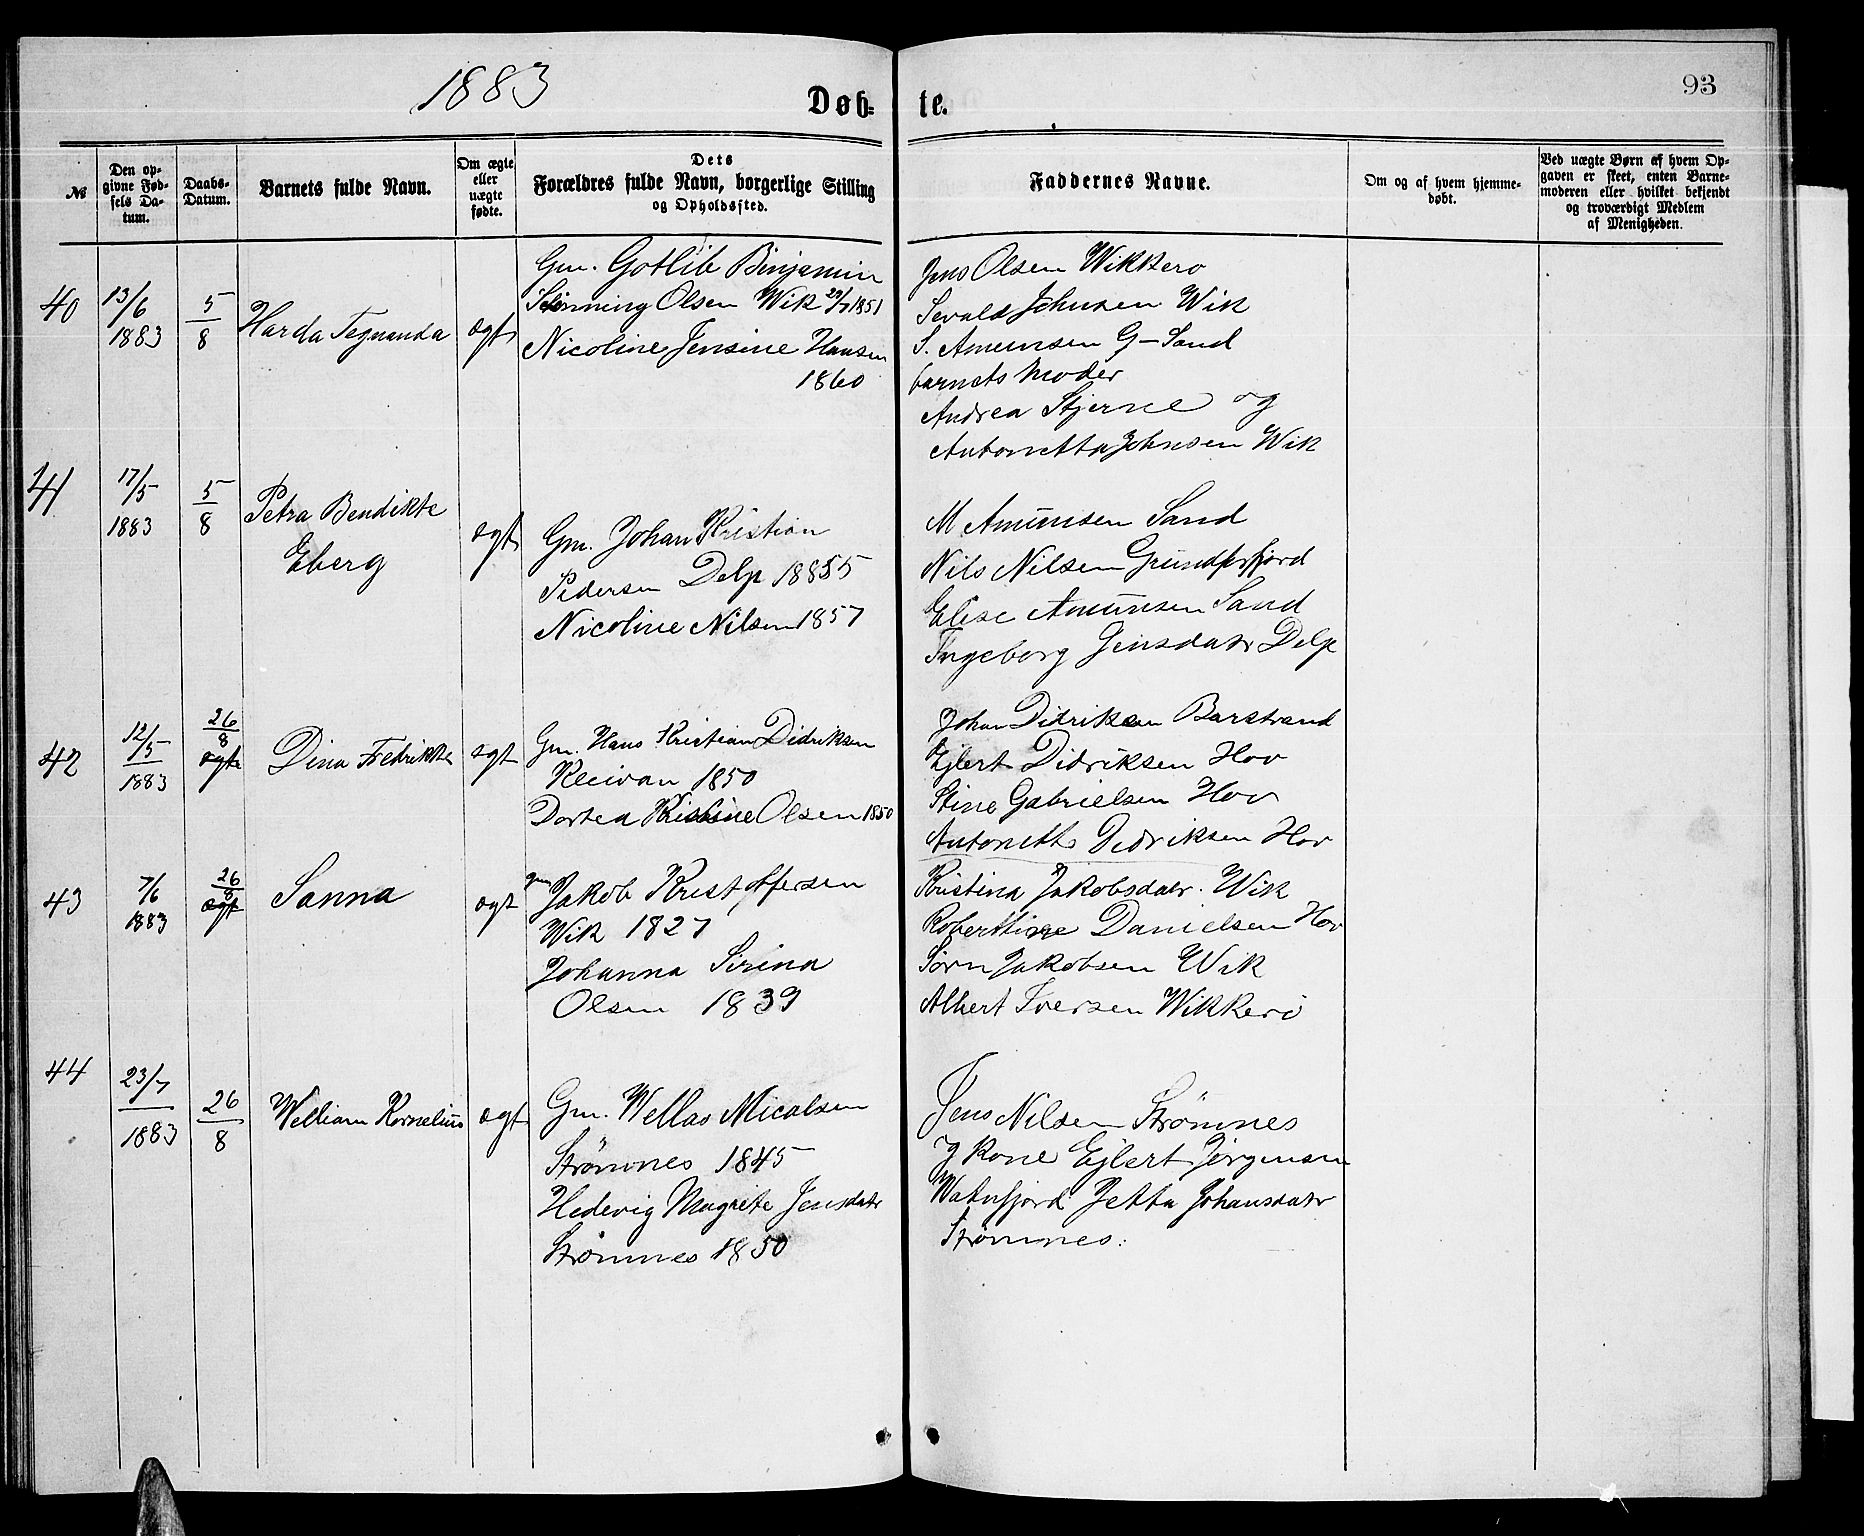 1883
Døb-
te.
93
№
Den op-
givne Fød-
sels Da-
tum.
Daabs-
Datum.
Barnets fulde Navn.
Om ægte
eller
uægte
fødte.
Dets
Forældres fulde Navn, borgerlige Stilling
og Opholdssted.
Faddernes Navne.
Om og af hvem hjemme-
døbt.
Ved uægte Børn af hvem Op-
gaven er skeet, enten Barne-
moderen eller hvilket bekjendt
og troværdigt Medlem
af Menigheden.
40
13/6
1883
5/8
Harda Tegnanda
ægt
Gm. Gotlib Binjamin
Olsen Wik 29/7 1851
Nicoline Jensine Hansen
1860
Jens Olsen Wikkerø
Sevald Johnsen Wik
S. Amunsen G-Sand
barnets Moder
Andrea Stjerne og
Antonetta Johnsen Wik
41
17/5
1883
5/8
Petra Bendikte
Eberg
ægt
Gm. Johan Kristian
Pedersen Delp 18855
Nicoline Nilsen 1857
M Amunsen Sand
Nils Nilsen Grundførfjord
Elise Amunsen Sand
Ingeborg Jensdatr Delp
42
12/5
1883
26/8
ægte
Dina Fredrikke
ægt
Gm. Hans Kristian Didriksen
Kleivan 1850
Dortea Kristine Olsen 1850
Johan Didriksen Barstrand
Ejlert Didriksen Hov
Stine Gabrielsen Hov
Antonette Didriksen Hov
43
7/6
1883
26/8
ægt
Sanna
ægt
gm
Jakob Kristoffersen
Wik 1827
Johanna Sirina
Olsen 1839
Kristina Jakobsdatr. Wik
Roberthine Danielsen Hov
Sørn Jakobsen Wik
Albert Iversen Wikkerø
44
23/7
1883
26/8
Welliam Kornelius
ægt
Gm. Wellas Micalsen
Strømnes 1845
Hedevig Magrete Jensdatr
Strømnes 1850
Jens Nilsen Strømnes
og Kone Ejlert Jørgensen
Watnfjord Jetta Johansdatr
Strømnes.